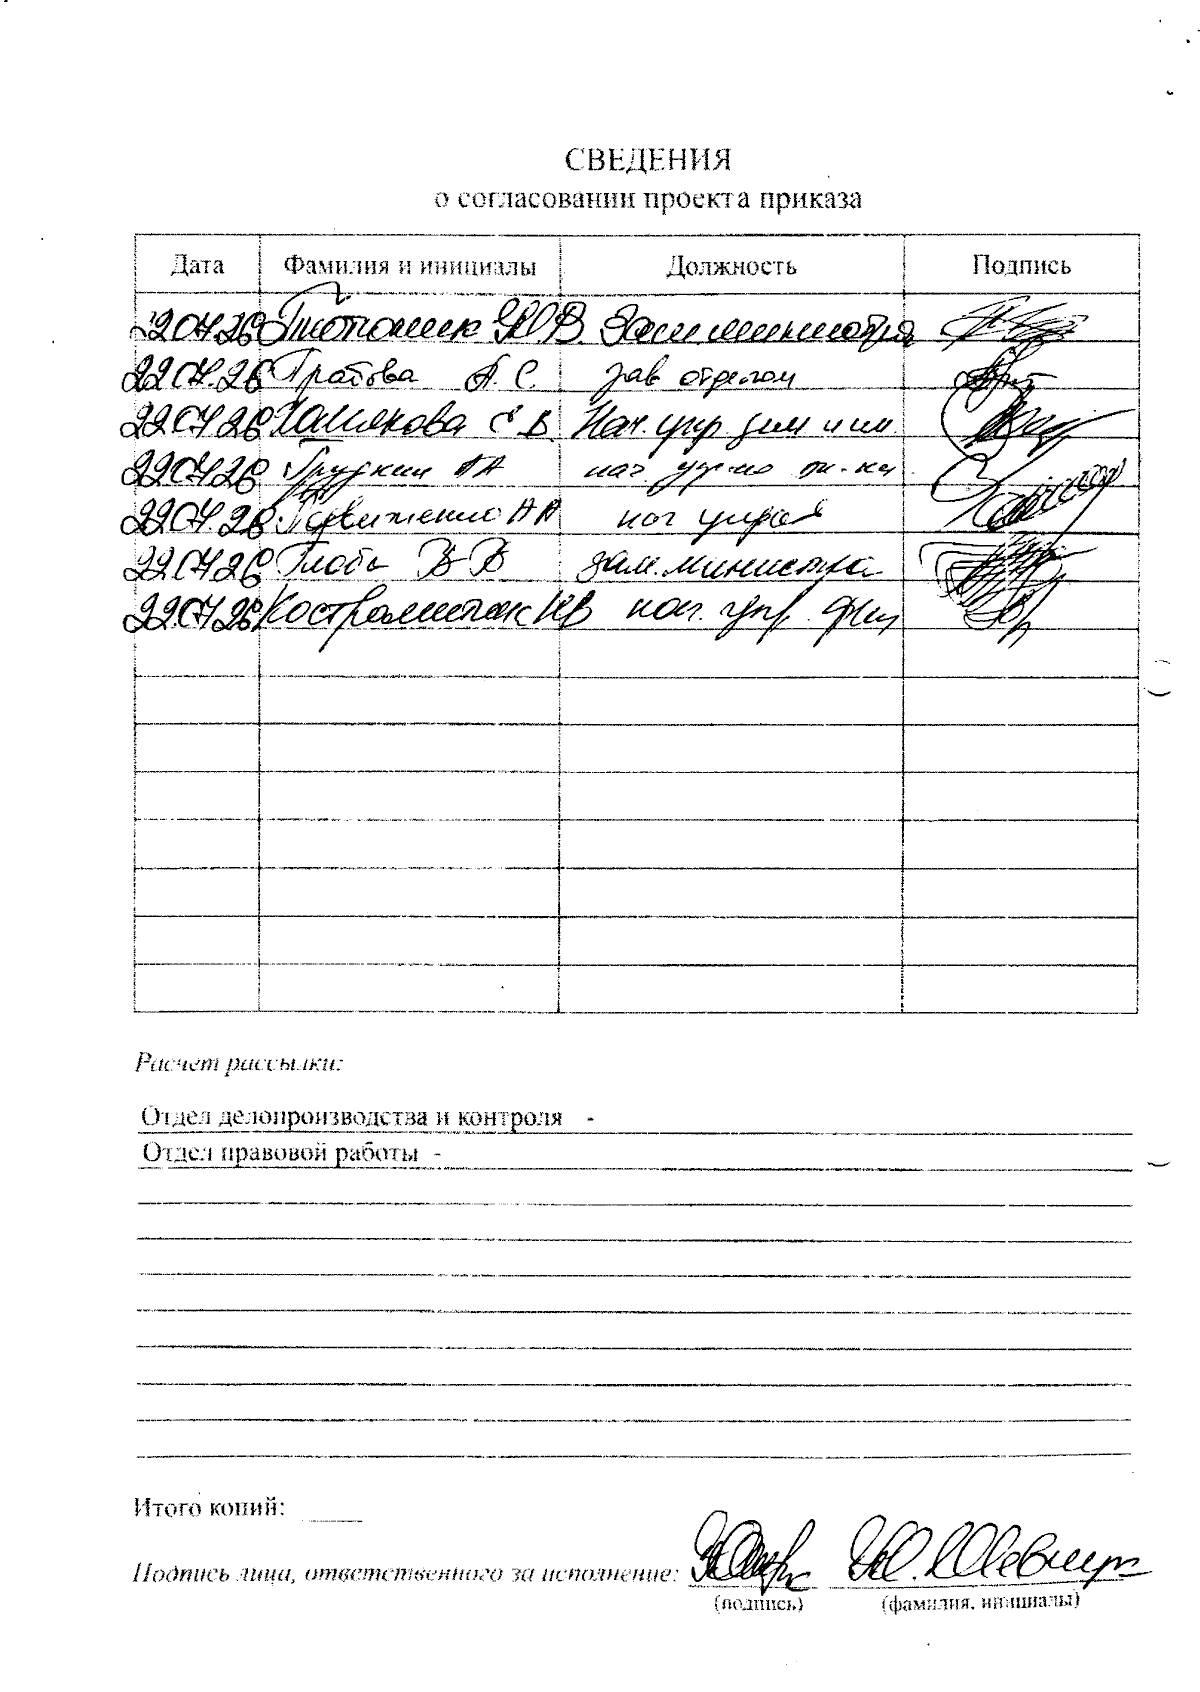 СВЕДЕНИЯ
о согласовании проекта приказа
Дата Фамилия и инициалы Должность Подпись
22.04.26 Ю В Зам министра
22.04.26 Гратова А. С. зав отделом
22.04.26 Хамякова Е В. Нач. упр. зем и им.
22.04.26 Грудкин АА нач
22.04.26 АА нач упр
22.04.26 Глоба В В зам. министра
22.04.26 нач. упр.
Расчет рассылки:
Отдел делопроизводства и контроля -
Отдел правовой работы -
Итого копий:
Подпись лица, ответственного за исполнение:
(подпись) (фамилия, инициалы)